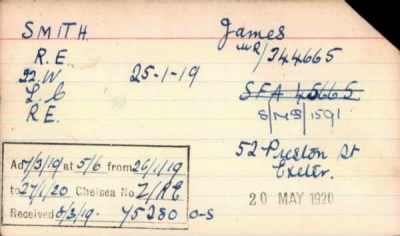 SMITH. James
R.E. WR/344665
22.W 25-1-19 SFA 45665
R.E. S/MB/1591
52 Preston St
Exeter.
Ad 7/3/19 at 5/6 from 26/1/19
to 27/1/20 Chelsea No Z/RE
Received 8/3/19. Y5280 O-S
20 MAY 1920